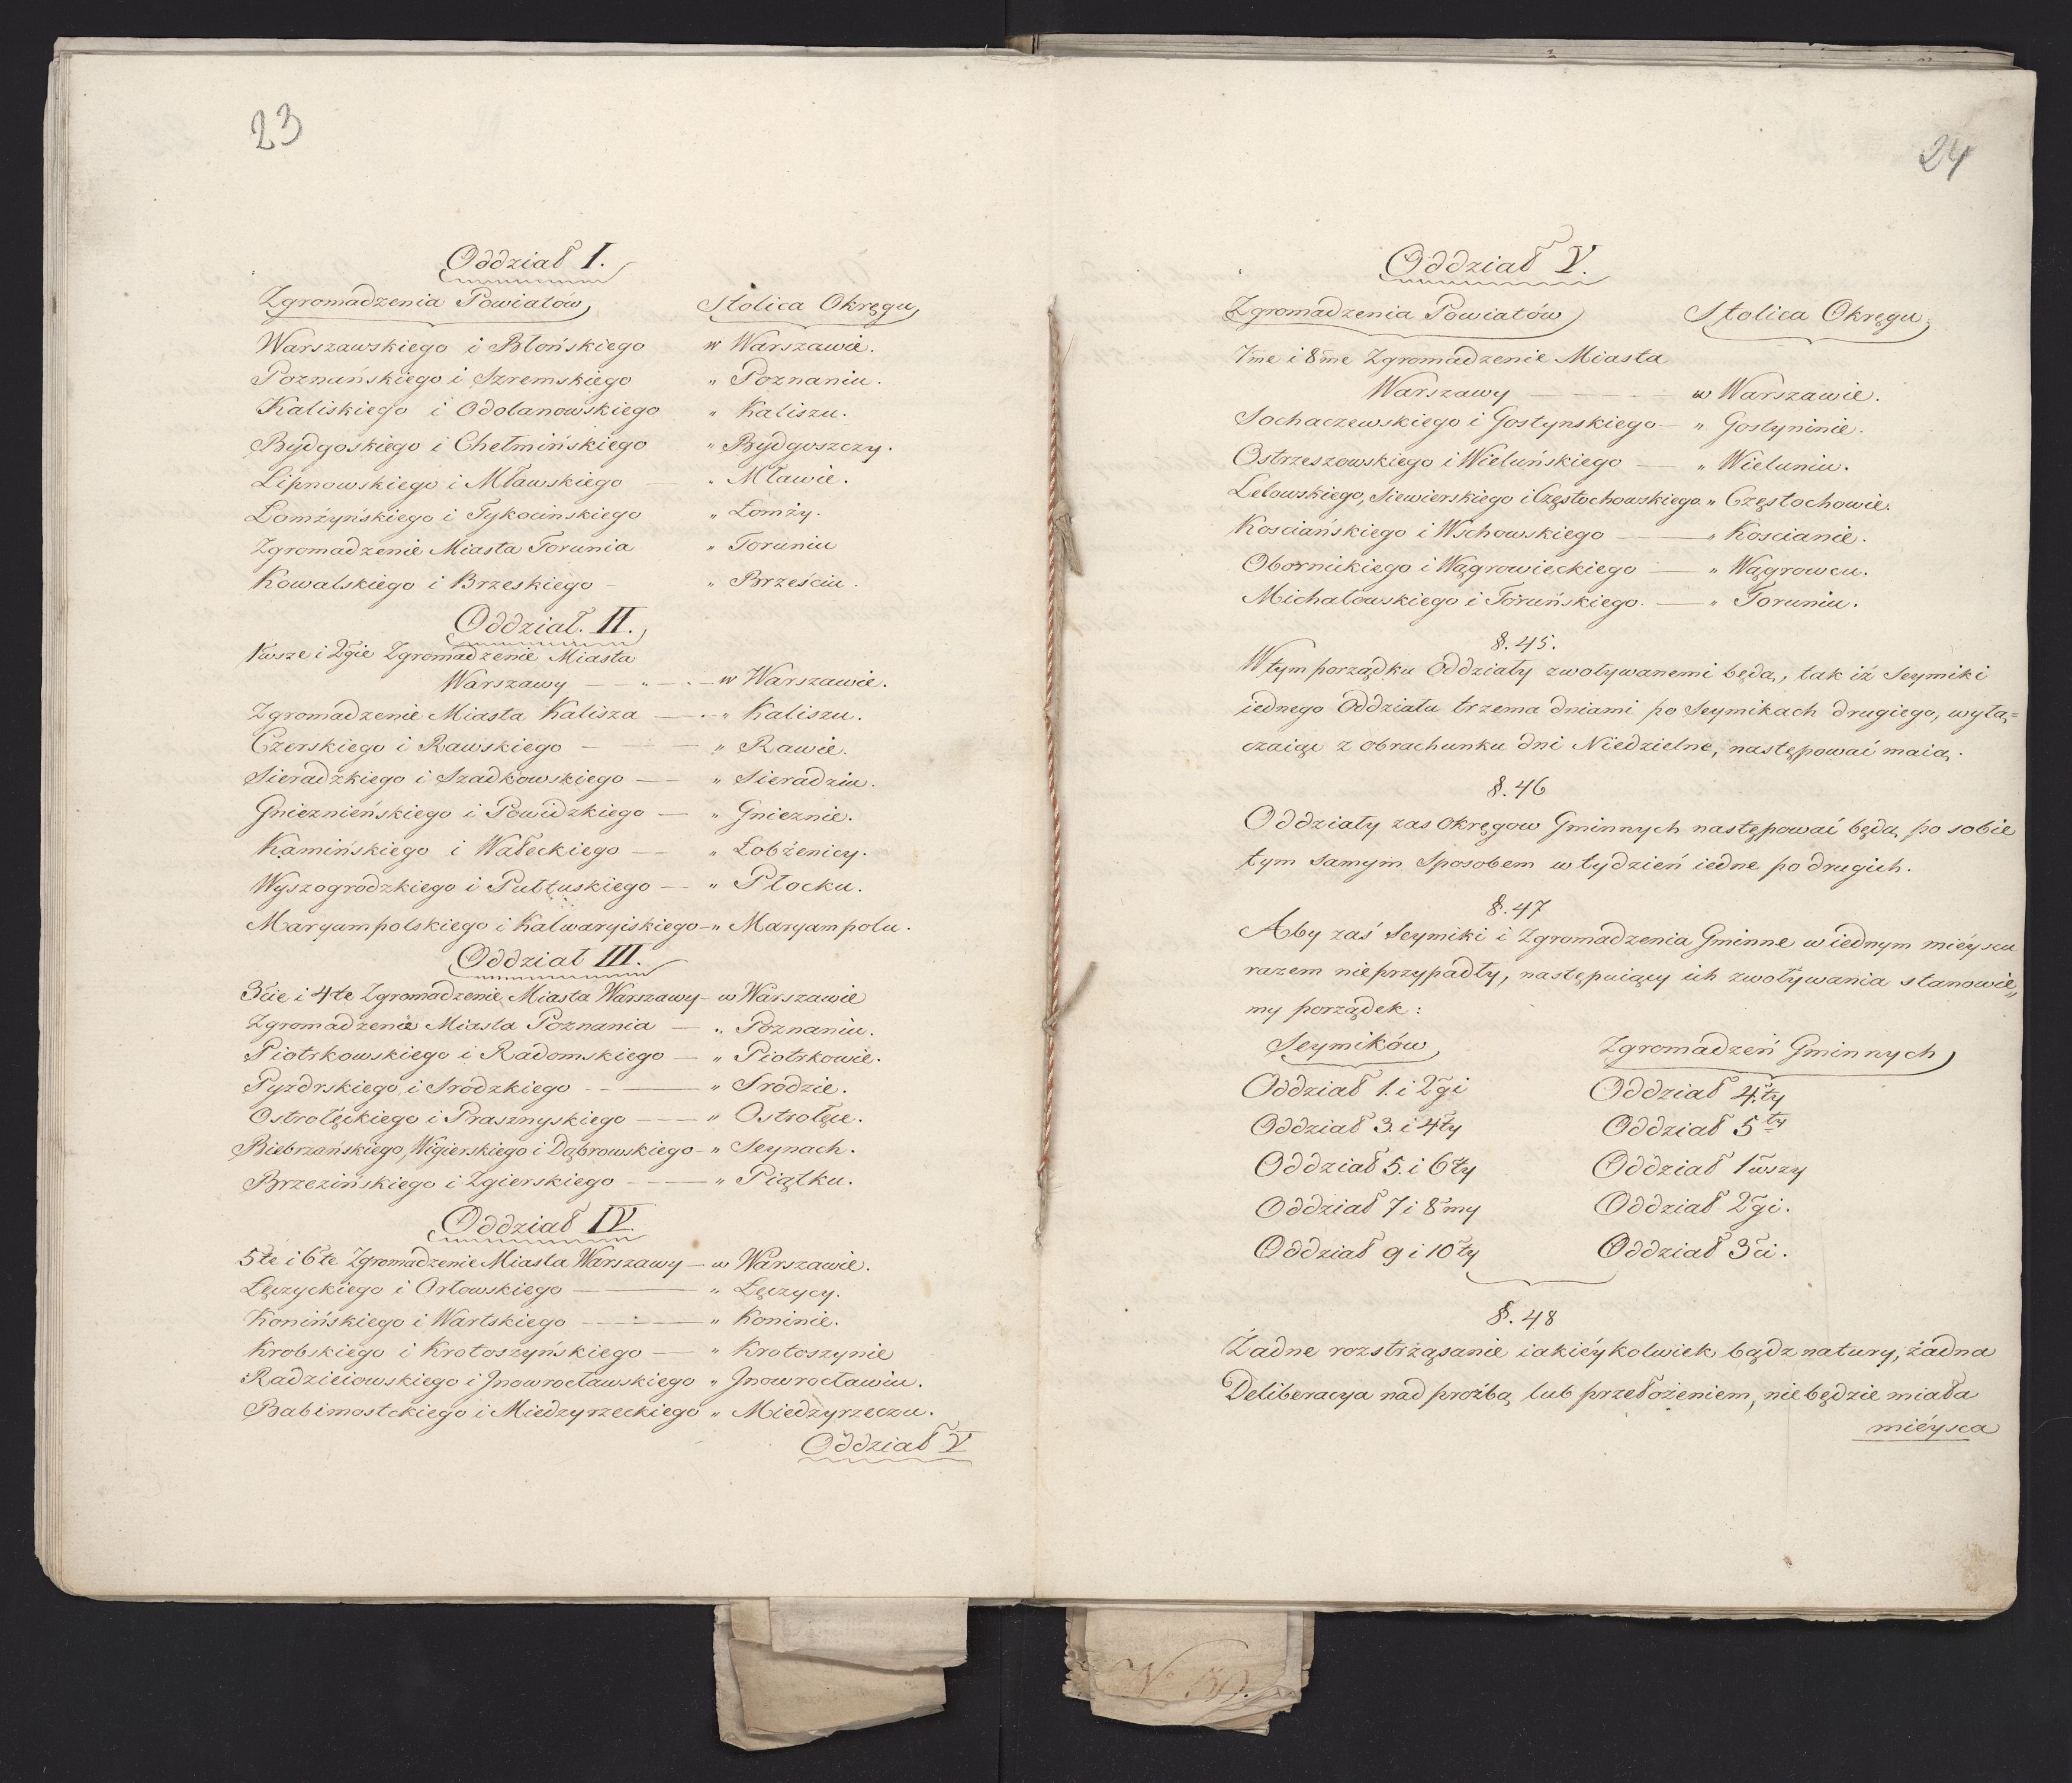 23
Oddział I.
Zgromadzenia Powiatów Stolica Okręgu
Warszawskiego i Błońskiego w Warszawie.
Poznańskiego i Szremskiego " Poznaniu.
Kaliskiego i Odolanowskiego " Kaliszu.
Bydgoskiego i Chełmińskiego " Bydgoszczy.
Lipnowskiego i Mławskiego — " Mławie.
Łomżyńskiego i Tykocinskiego " Łomży.
Zgromadzenie Miasta Torunia " Toruniu
Kowalskiego i Brzeskiego - " Brześciu.
Oddział. II.
1wsze i 2gie Zgromadzenie Miasta
Warszawy — " — w Warszawie.
Zgromadzenie Miasta Kalisza — " Kaliszu.
Czerskiego i Rawskiego — " Rawie.
Sieradzkiego i Szadkowskiego — " Sieradziu.
Gnieznieńskiego i Powidzkiego — " Gnieznie.
Kamińskiego i Wałeckiego — " Łobżenicy.
Wyszogrodzkiego i Pułtuskiego — " Płocku.
Maryampolskiego i Kalwaryiskiego - " Maryampolu.
Oddział III.
3cie i 4te Zgromadzenie Miasta Warszawy - w Warszawie
Zgromadzenie Miasta Poznania — " Poznaniu.
Piotrkowskiego i Radomskiego — " Piotrkowie.
Pyzdrskiego i Srodzkiego — " Srodzie.
Ostrołęckiego i Prasznyskiego — " Ostrołęce.
Biebrzańskiego, Wigierskiego i Dąbrowskiego - " Seynach.
Brzezińskiego i Zgierskiego — " Piątku.
Oddział IV.
5te i 6te Zgromadzenie Miasta Warszawy — w Warszawie.
Łęczyckiego i Orłowskiego — " Łęczycy.
Konińskiego i Wartskiego — " Koninie.
Krobskiego i Krotoszyńskiego — " Krotoszynie
Radzieiowskiego i Jnowrocławskiego " Jnowrocławiu.
Babimostckiego i Miedzyrzeckiego " Miedzyrzeczu.
Oddział V
24
Oddział V.
Zgromadzenia Powiatów Stolica Okręgu
7me i 8me Zgromadzenie Miasta
Warszawy — w Warszawie.
Sochaczewskiego i Gostynskiego — " Gostyninie.
Ostrzeszowskiego i Wieluńskiego — " Wieluniu.
Lelowskiego, Siewierskiego i Częstochowskiego. " Częstochowie.
Kosciańskiego i Wschowskiego — " Koscianie.
Obornickiego i Wągrowieckiego — " Wągrowcu.
Michałowskiego i Toruńskiego. — " Toruniu.
§. 45.
W tym porządku Oddziały zwoływanemi będą, tak iż Seymiki
iednego Oddziału trzema dniami po Seymikach drugiego, wyłą=
czaiąc z obrachunku dni Niedzielne, następować maią.
§. 46
Oddziały zas Okręgow Gminnych następować będą po sobie
tym samym Sposobem w tydzień iedne po drugich.
§. 47
Aby zaś Seymiki i Zgromadzenia Gminne w iednym mieyscu
razem nieprzypadły, następuiący ich zwoływania stanowie„
my porządek:
Seymików Zgromadzeń Gminnych
Oddział 1. i 2gi Oddział 4ty
Oddział 3. i 4ty Oddział 5ty
Oddział 5. i 6ty Oddział 1wszy
Oddział 7 i 8my Oddział 2gi.
Oddział 9 i 10ty Oddział 3ci.
§. 48
Żadne roztrząsanie iakiéykolwiek bądz natury, żadna
Deliberacya nad prożbą lub przełożeniem, niebędzie miała
mieysca